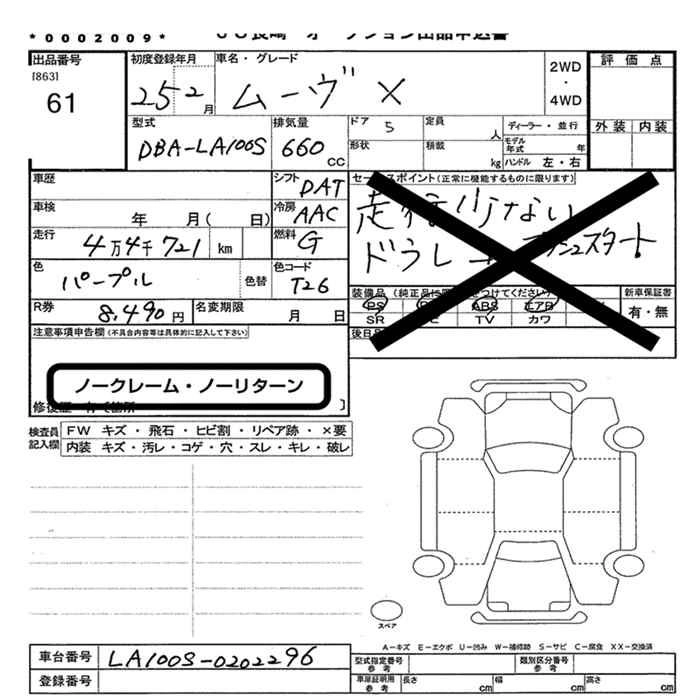 *0002009*
出品番号
[863]
61
初度登録年月
25 2 月
車名・グレード
ムーヴ X
2WD
・
4WD
評価点
外装 内装
型式
DBA-LA100S
排気量
660 CC
ドア 5
定員 人
ディーラー・並行
形状
積載 kg
モデル年式 年
ハンドル 左・右
車歴
シフト DAT
セールスポイント(正常に機能するものに限ります)
走行少ない
車検 年 月( 日)
冷房 AAC
走行 4万4千721 km
燃料 G
色 パープル
色替
色コード T26
装備品
新車保証書
有・無
PS ABS エアB
SR TV カワ
R券 8,490 円
名変期限 月 日
注意事項申告欄(不具合内容等は具体的に記入して下さい)
ノークレーム・ノーリターン
検査員記入欄
FW キズ・飛石・ヒビ割・リペア跡・×要
内装 キズ・汚レ・コゲ・穴・スレ・キレ・破レ
スペア
A−キズ E−エクボ U−凹み W−補修跡 S−サビ C−腐食 XX−交換済
車台番号 LA100S-0202296
登録番号
型式指定番号参考
類別区分番号参考
車庫証明用参考
長さ cm
幅 cm
高さ cm